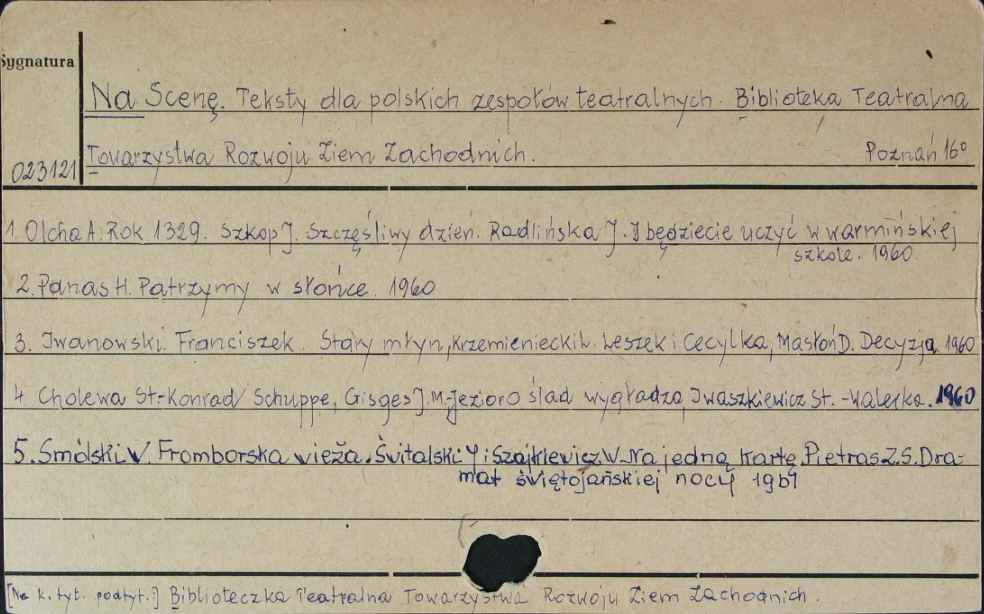 Sygnatura
Na Scenę. Teksty dla polskich zespołów teatralnych. Biblioteka Teatralna
Towarzystwa Rozwoju Ziem Zachodnich. Poznań 16°
023121
1. Olcha A. Rok 1329. Szkop J. Szczęśliwy dzień. Radlińska J. I będziecie uczyć w warmińskiej
szkole. 1960
2. Panas H. Patrzymy w słońce. 1960
3. Iwanowski. Franciszek. Stary młyn, Krzemieniecki L. Leszek i Cecylka, Masłoń D. Decyzja. 1960
4 Cholewa St. - Konrad Schuppe, Gisges J. M. - Jezioro ślad wygładza, Iwaszkiewicz St. - Walerka. 1960
5. Smólski W. Fromborska wieża. Świtalski Y i Szajkiewicz W. Na jedną kartę. Pietras Z. S. Dra-
mat świętojańskiej nocy 1961
[Na k. tyt. podtyt.:] Biblioteczka Teatralna Towarzystwa Rozwoju Ziem Zachodnich.